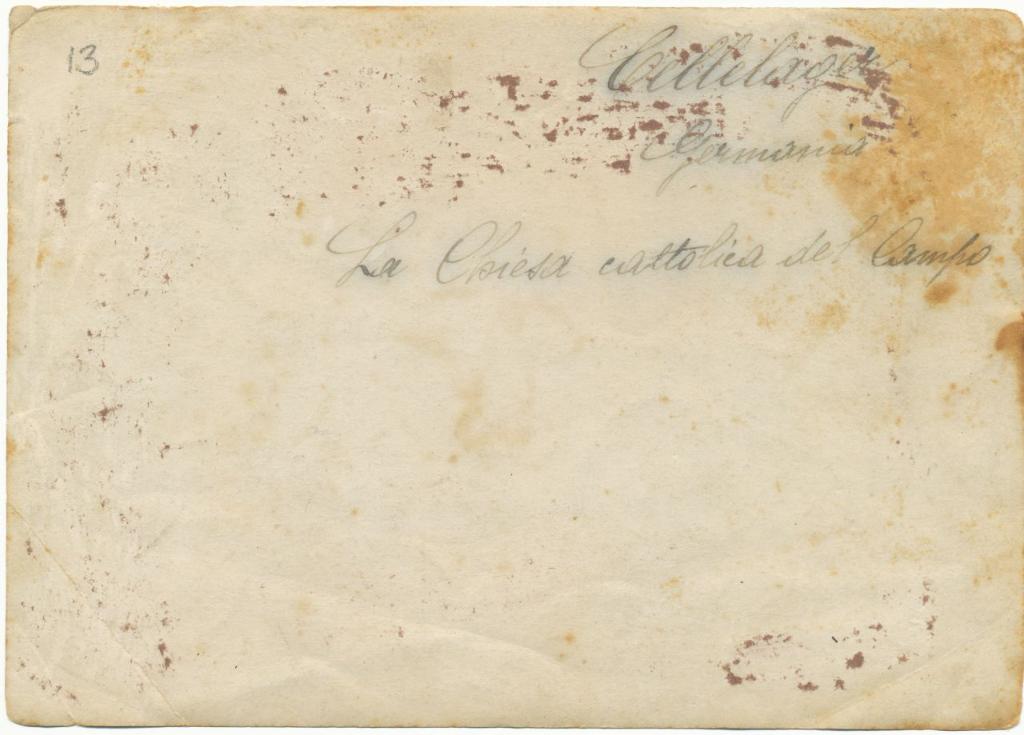 13
Cellelager
Germania
La Chiesa cattolica del Campo